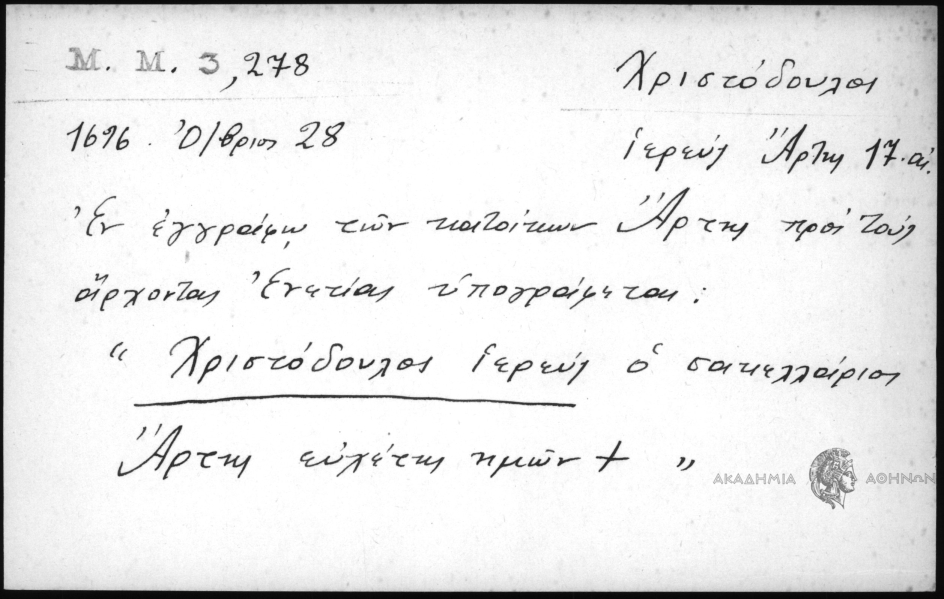 Μ. Μ. 3, 278
Χριστόδουλος
1696. Ὀ/βριος 28
ἱερεὺς Ἄρτης 17. αἰ.
Ἐν ἐγγράφῳ τῶν κατοίκων Ἄρτης πρὸς τοὺς
ἄρχοντας Ἐνετίας ὑπογράφεται:
“ Χριστόδουλος ἱερεὺς ὁ σακελλάριος
Ἄρτης εὐχέτης ημῶν + ”
ΑΚΑΔΗΜΙΑ ΑΘΗΝΩΝ